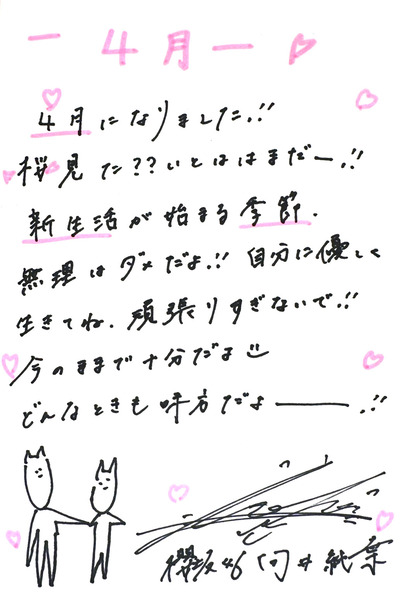 ー4月ー
4月になりました.!!
桜見た??いとははまだー.!!
新生活が始まる季節.
無理はダメだよ.!! 自分に優しく
生きてね. 頑張りすぎないで.!!
今のままで十分だよ
どんなときも味方だよ———.!!
櫻坂46 向井純葉